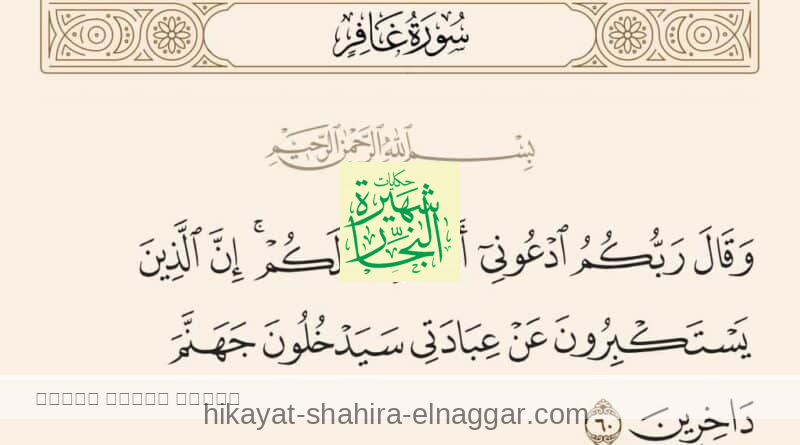 سُورَةُ غَافِرٍ
بِسْمِ ٱللَّهِ ٱلرَّحْمَٰنِ ٱلرَّحِيمِ
حكايات
شهيرة
النجار
وَقَالَ رَبُّكُمُ ٱدْعُونِىٓ لَكُمْ ۚ إِنَّ ٱلَّذِينَ
يَسْتَكْبِرُونَ عَنْ عِبَادَتِى سَيَدْخُلُونَ جَهَنَّمَ
دَاخِرِينَ ٦٠
hikayat-shahira-elnaggar.com